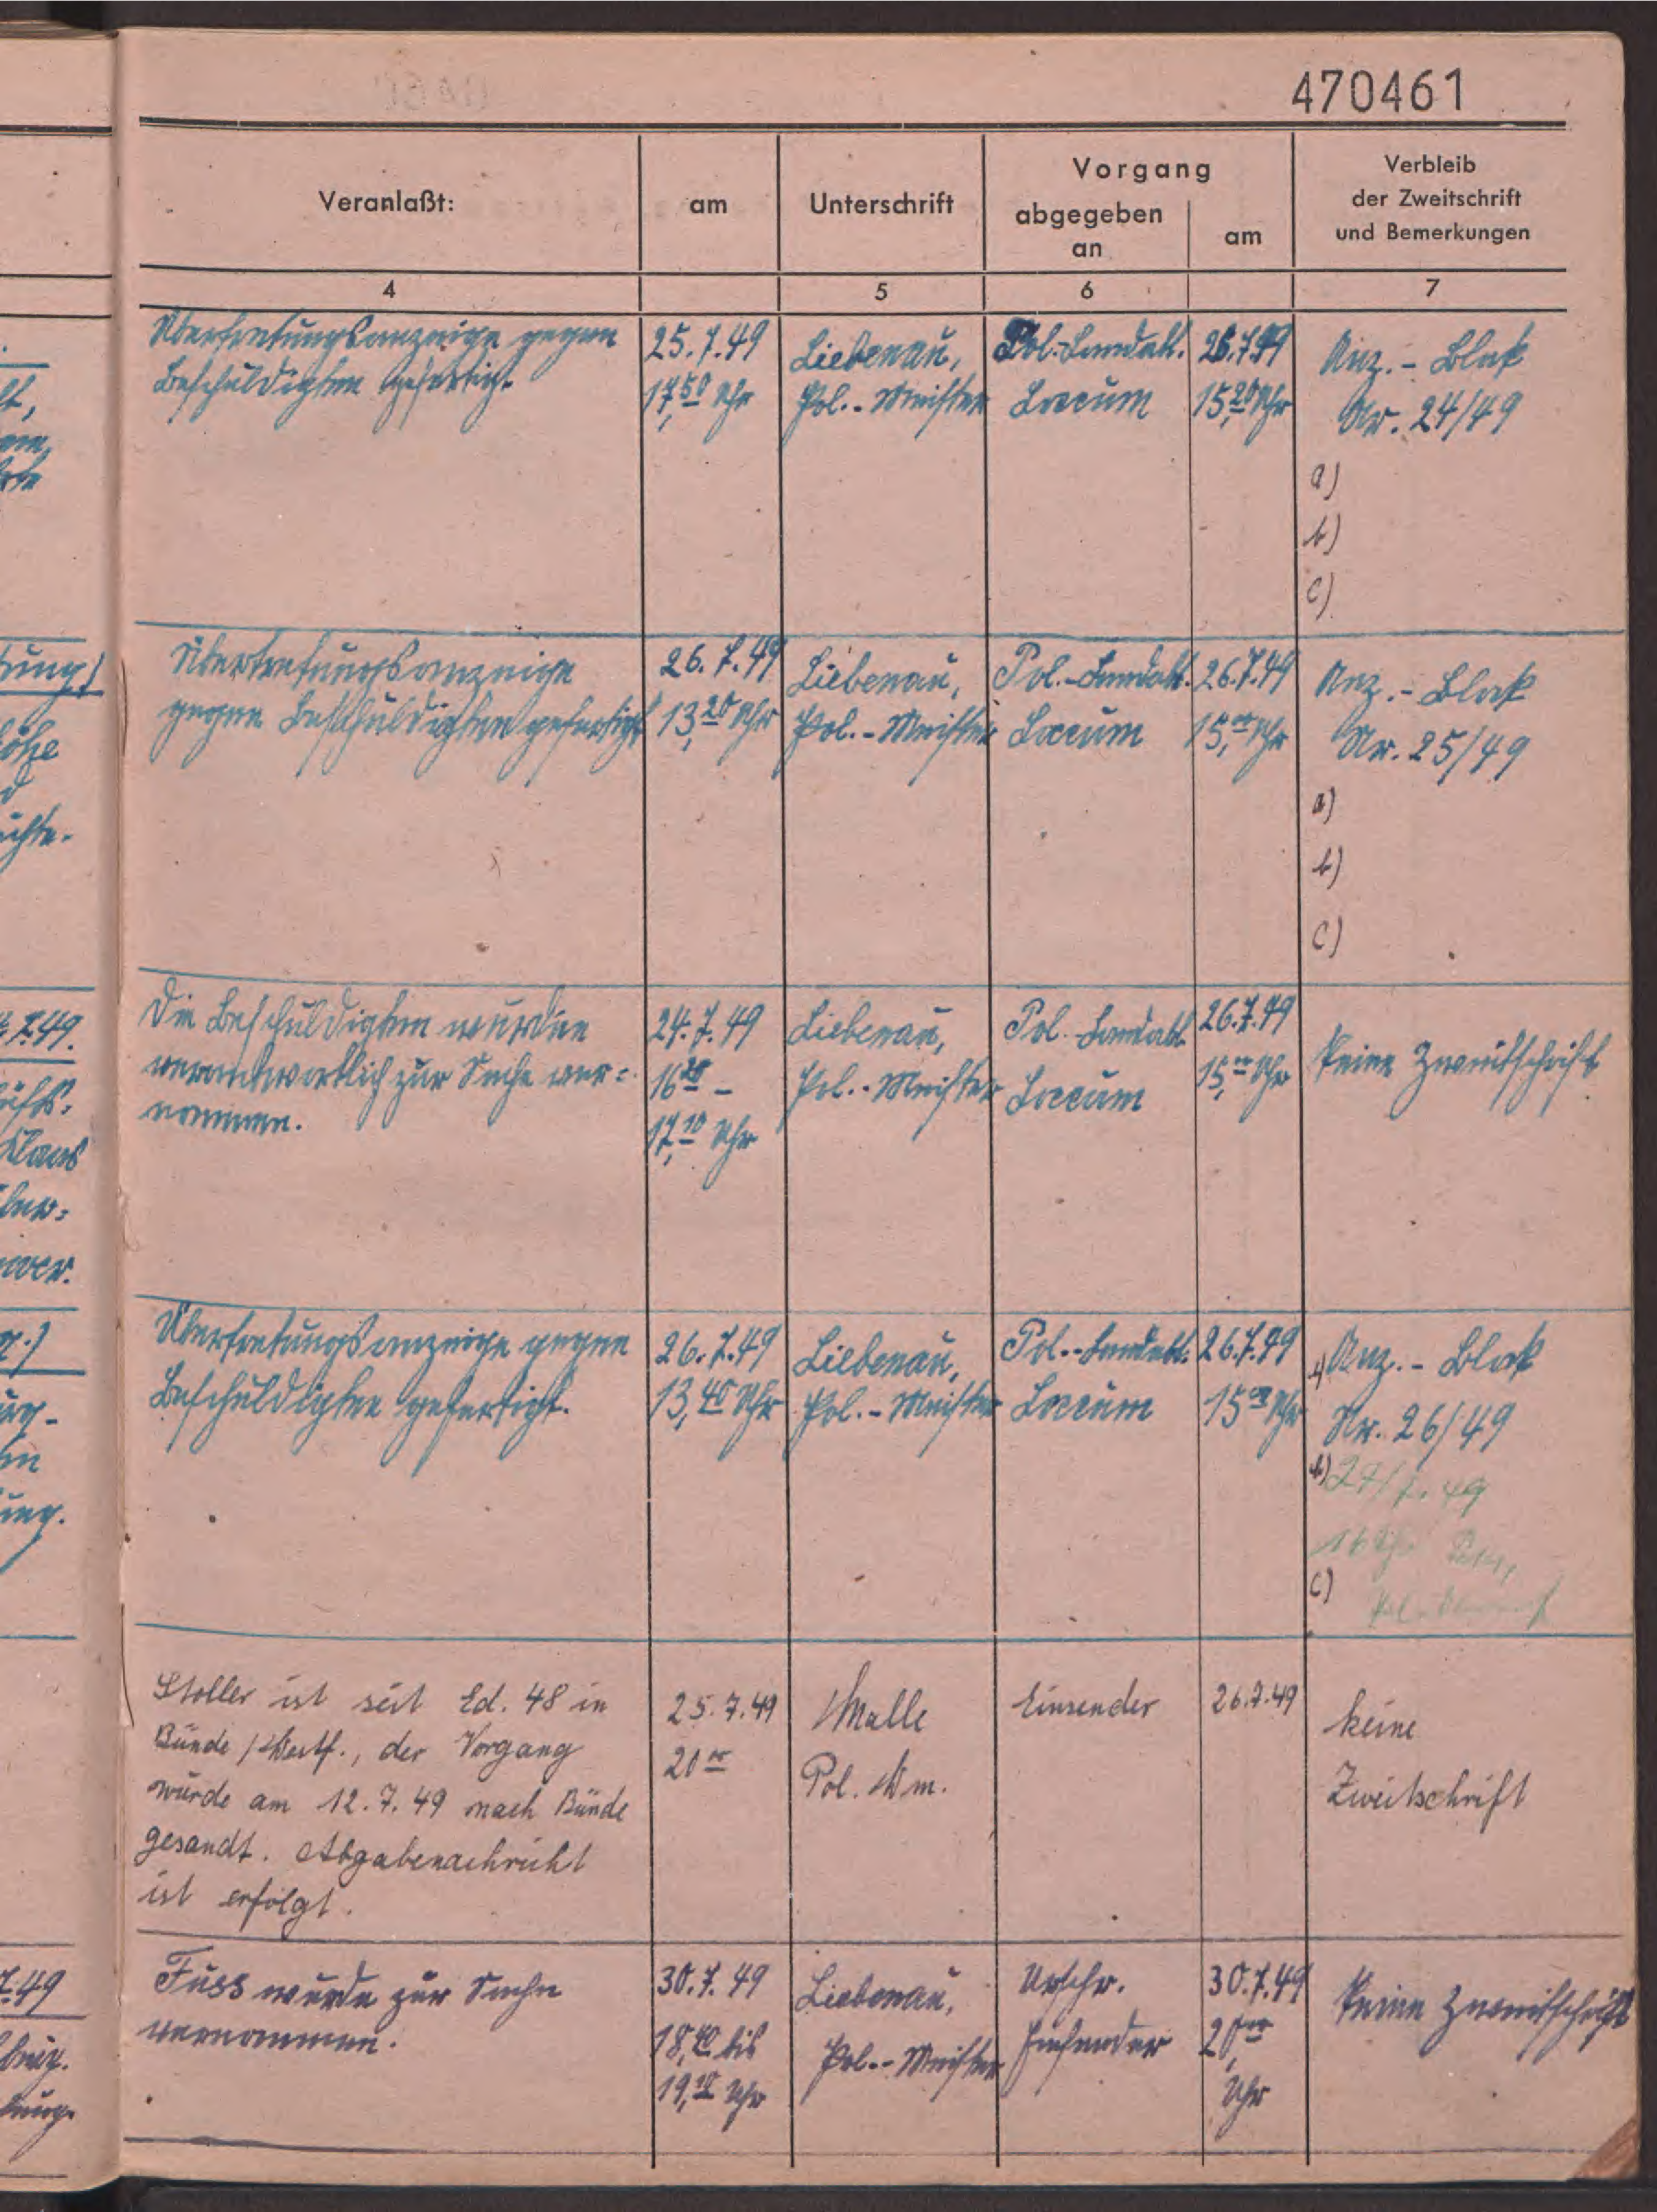 470461
Veranlaßt:
am
Unterschrift
Vorgang
abgegeben
an
am
Verbleib
der Zweitschrift
und Bemerkungen
4
5
6
7
Übertretungsanzeige gegen
Beschuldigten gefertigt.
25.7.49
17,50 Uhr
Liebenau,
Pol.-Meister
Pol.-Landabt.
Loccum
26.7.49
15,20 Uhr
Anz.-Block
Nr. 24/49
a)
b)
c)
Übertretungsanzeige
gegen Beschuldigten gefertigt
26.7.49
13,20 Uhr
Liebenau,
Pol.-Meister
Pol.-Landabt.
Loccum
26.7.49
15,00 Uhr
Anz.-Block
Nr. 25/49
a)
b)
c)
Die Beschuldigten wurden
verantwortlich zur Sache ver=
nommen.
24.7.49
16 20 –
17,10 Uhr
Liebenau,
Pol.-Meister
Pol.-Landabt.
Loccum
26.7.49
15,00 Uhr
keine Zweitschrift
Übertretungsanzeige gegen
Beschuldigten gefertigt.
26.7.49
13,40 Uhr
Liebenau,
Pol.-Meister
Pol.-Landabt.
Loccum
26.7.49
15 00 Uhr
a) Anz.-Block
Nr. 26/49
b) 27/7.49
16
c)
Stoller ist seit Ed. 48 in
Bünde /Westf., der Vorgang
wurde am 12.7.49 nach Bünde
gesandt. Abgabenachricht
ist erfolgt.
25.7.49
20 00
Malle
Pol. Wm.
Einsender
26.7.49
keine
Zweitschrift
Fuss wurde zur Sache
vernommen.
30.7.49
18,40 bis
19,10 Uhr
Liebenau,
Pol.-Meister
Urschr.
Einsender
30.7.49
20,00
Uhr
keine Zweitschrift